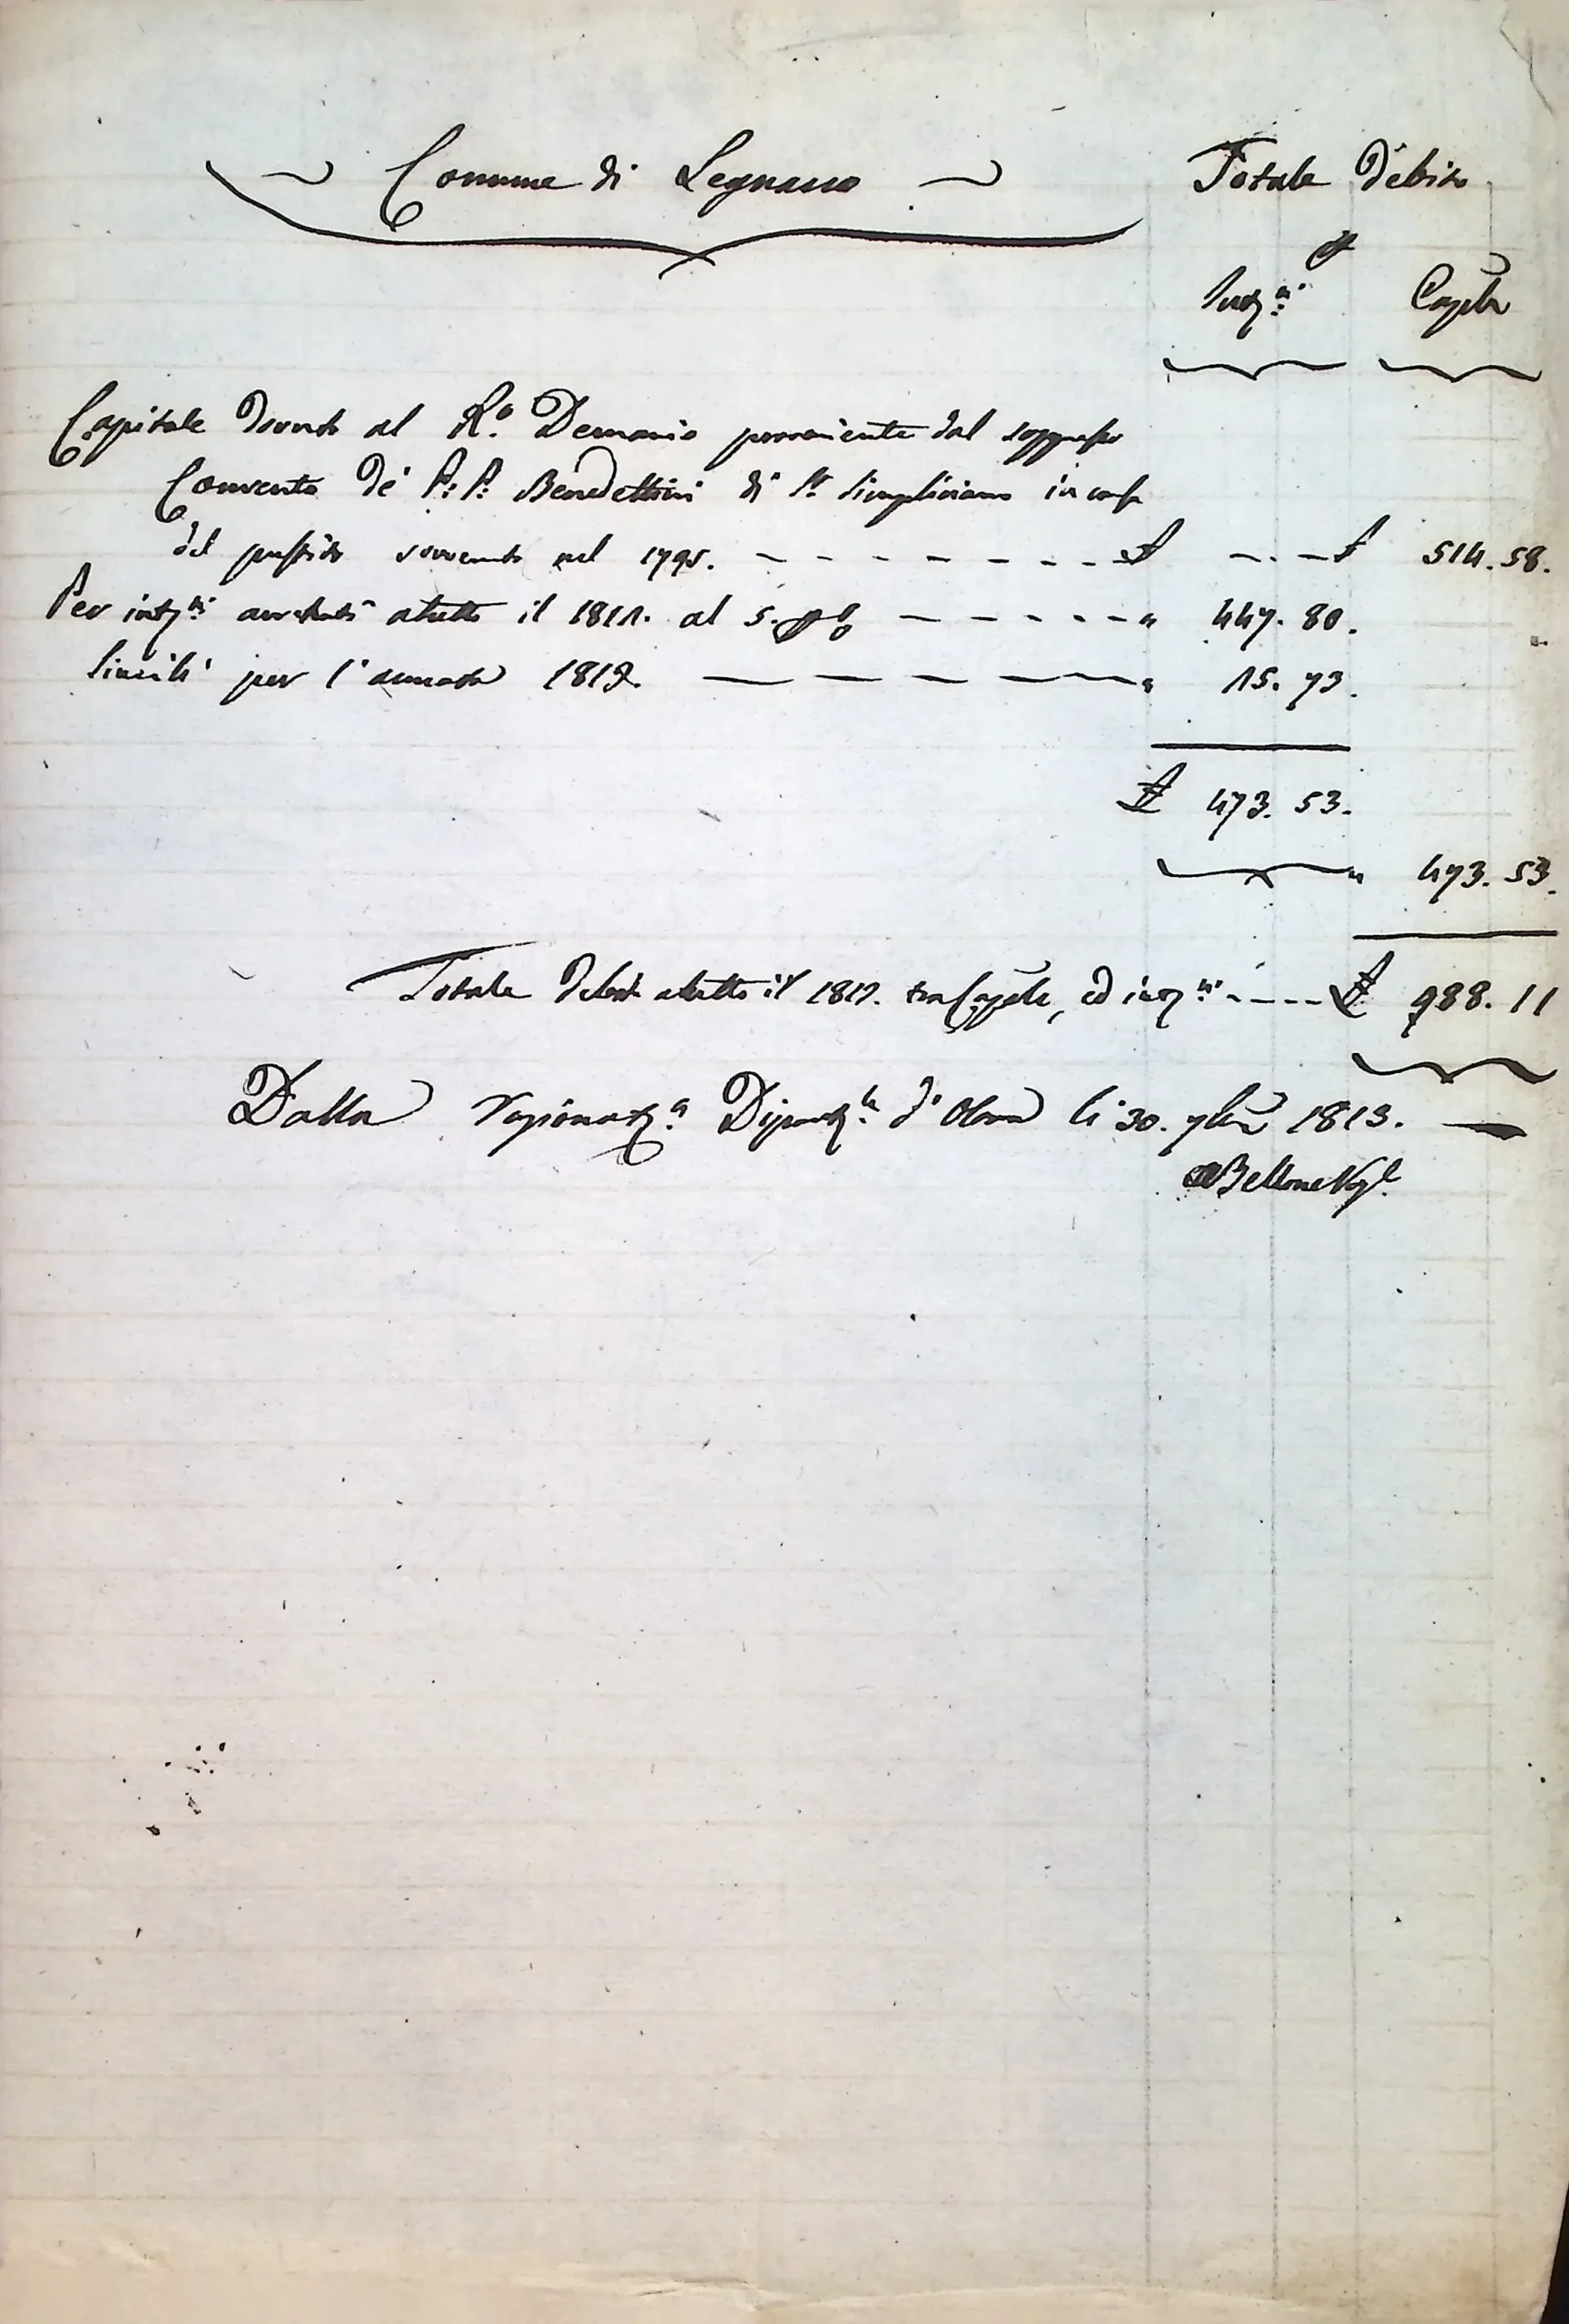 Comune di Legnano
Totale Debito
Int.ⁱ Cap.le
Capitale dovuto al R.º Demanio proveniente dal soppresso
Convento de' P: P: Benedettini di S.ⁿ Simpliciano in causa
del prestito sovvenuto nel 1795. £ £ 514.58.
Per int.ⁱ arretrati a tutto il 1811. al 5. p% " 447. 80.
Simili per l'annata 1812. " 15. 73.
£ 473. 53.
" 473. 53.
Totale Debito a tutto il 1812. tra Cap.le, ed int.ⁱ £ 988. 11
Dalla Ragionat.ª Dipart.le d'Olona li 30. 9bre 1813.